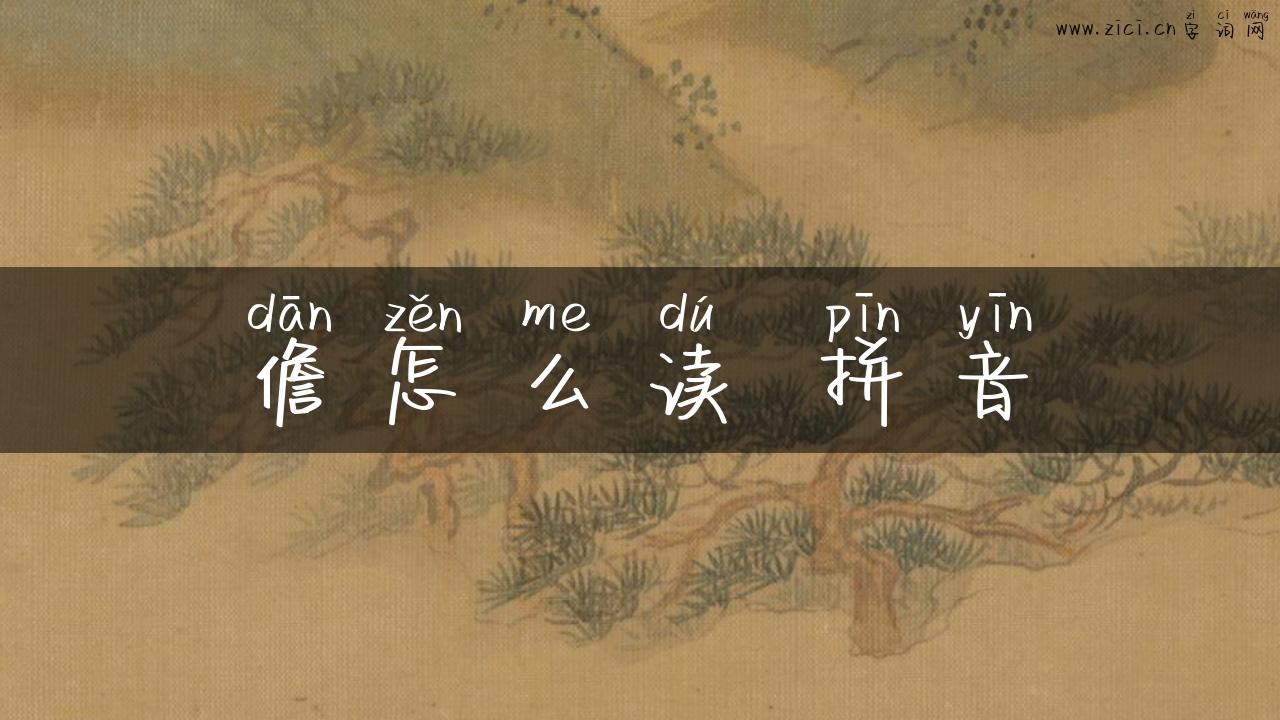 zì cí wǎng
www.zici.cn 字词网
dān zěn me dú pīn yīn
儋怎么读 拼音